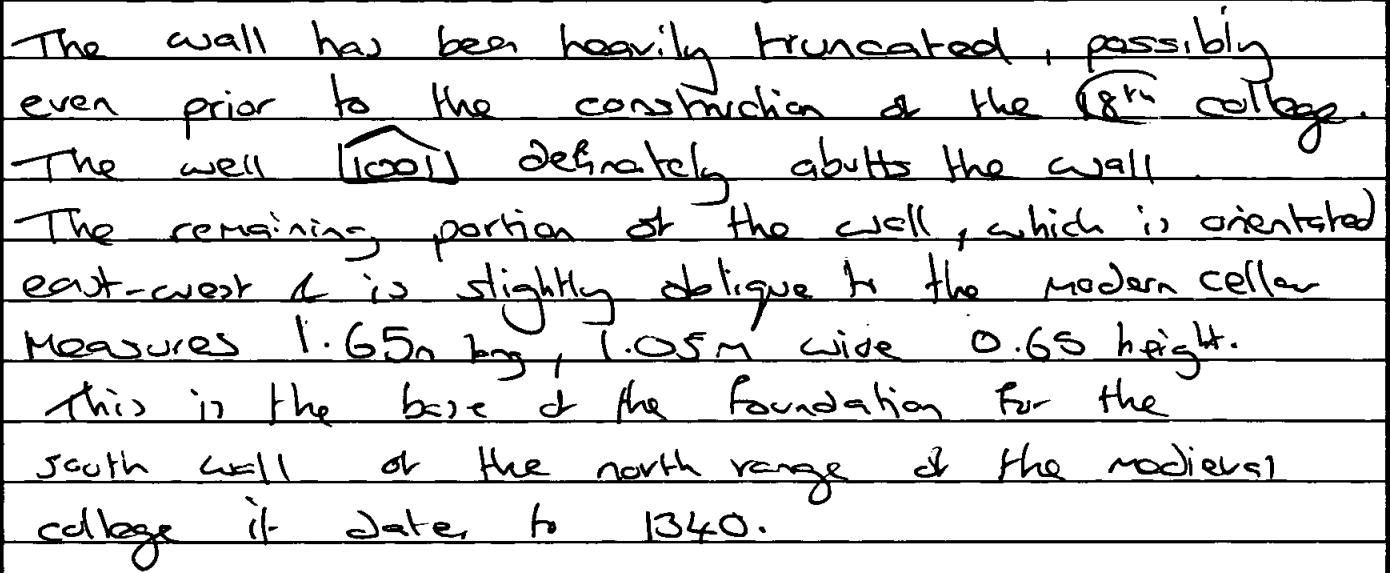 The wall has been heavily truncated, possibly
even prior to the construction of the 18th college.
The well [1001] definately abutts the wall.
The remaining portion of the wall, which is orientated
east-west & is slightly oblique to the modern cellar
measures 1.65m long, 1.05m wide 0.65 height.
This is the base of the foundation for the
south wall of the north range of the medieval
college it dates to 1340.